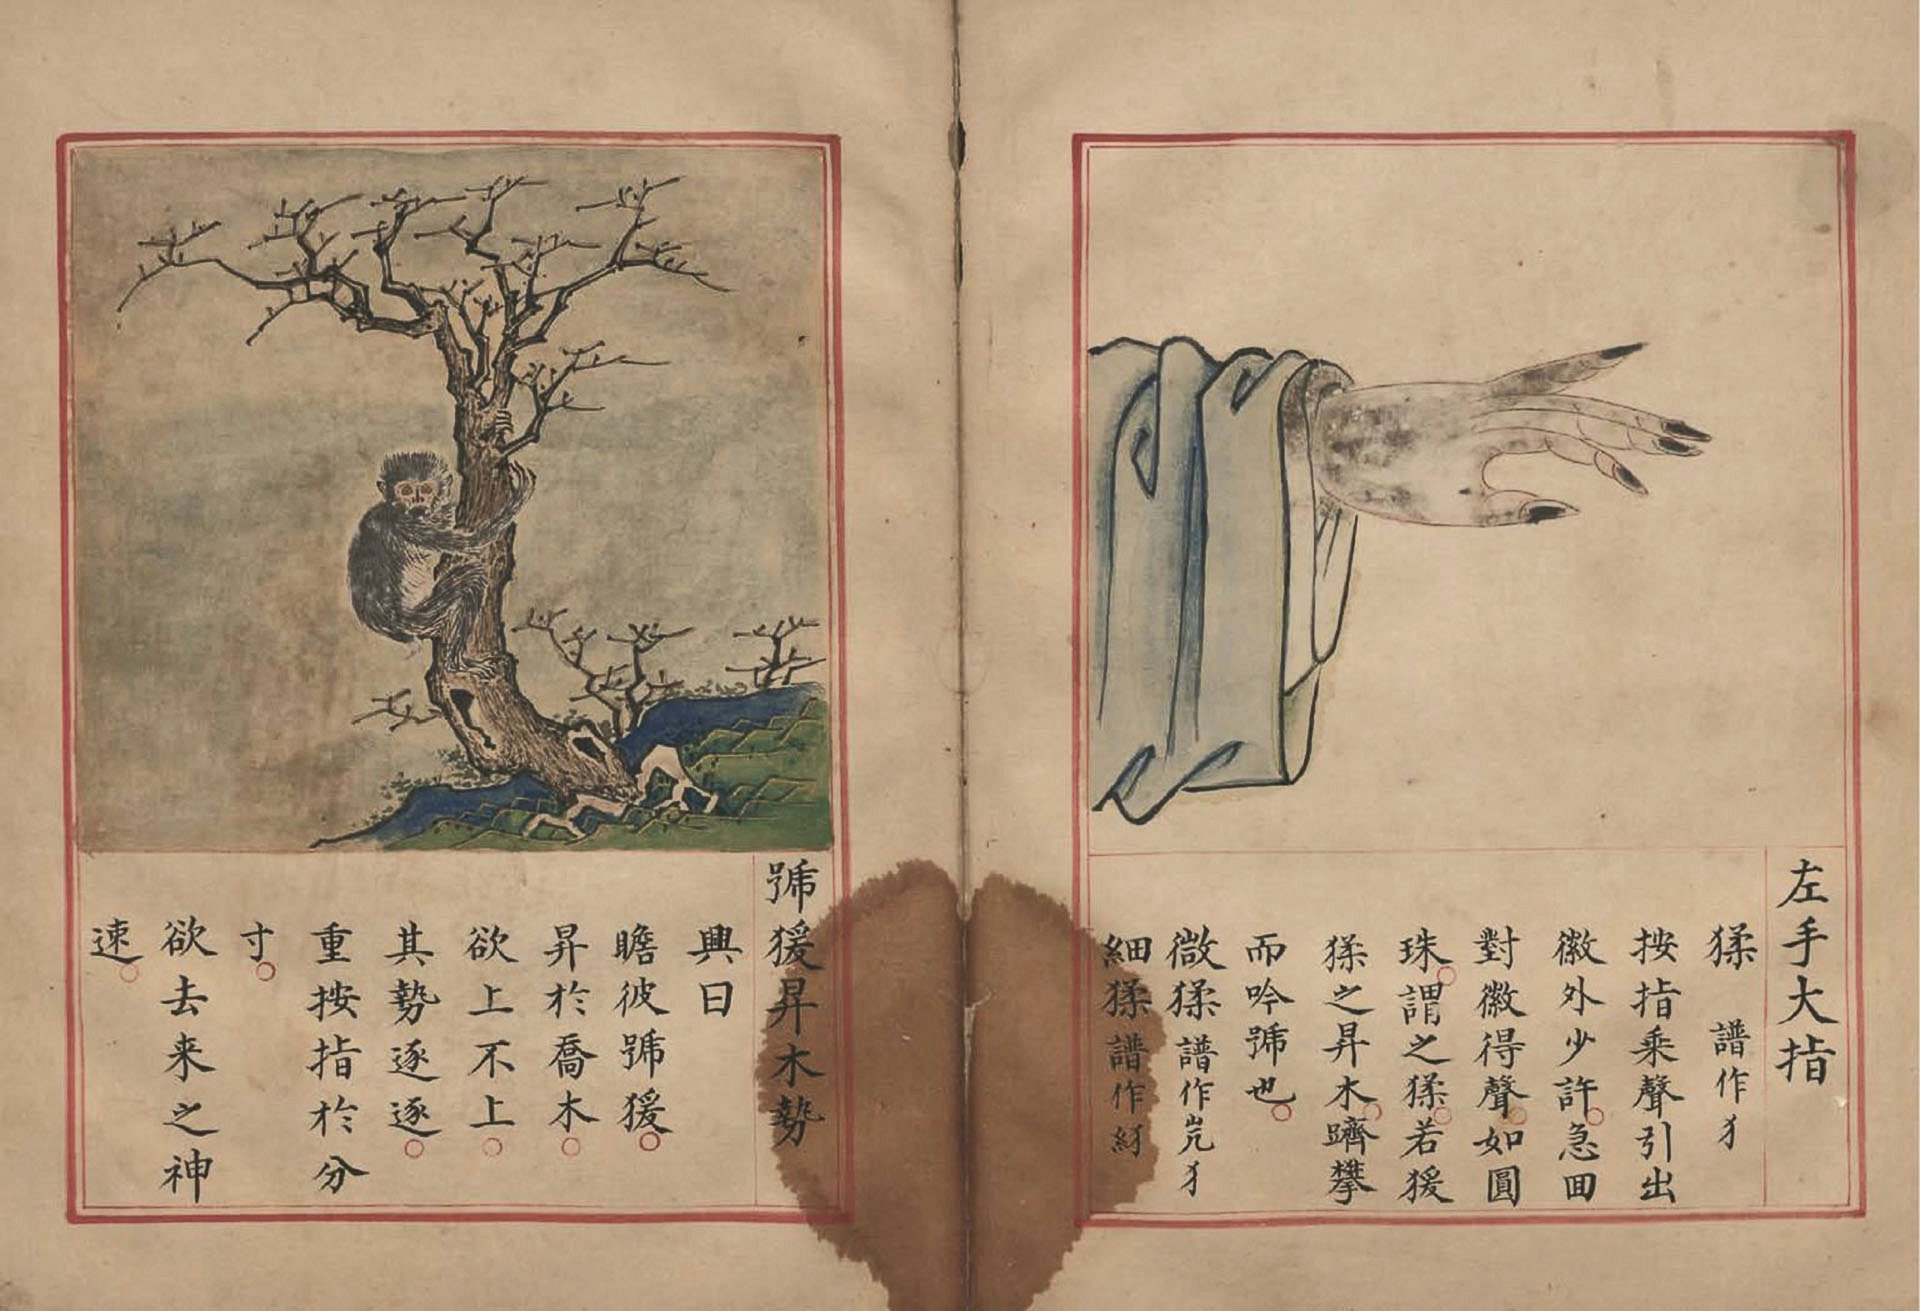 左手大指
猱 譜作犭
按指乘聲引出
徽外少許急回
對徽得聲如圓
珠謂之猱若猨
猱之昇木躋攀
而吟號也
微猱譜作㞷犭
細猱譜作糿
號猨昇木勢
興曰
瞻彼號猨
昇於喬木
欲上不上
其勢逐逐
重按指於分
寸
欲去来之神
速